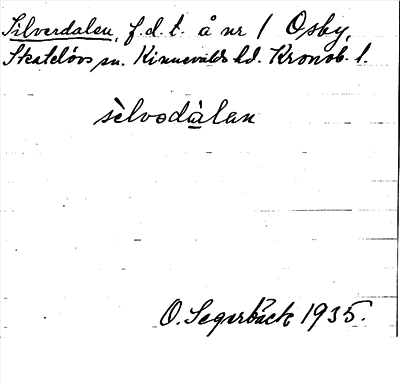 Silverdalen, f.d.t. å nr 1 Osby,
Skatelövs sn. Kinnevalds hd. Kronob. l.
sèlvədàlan
O. Segerbäck 1935.